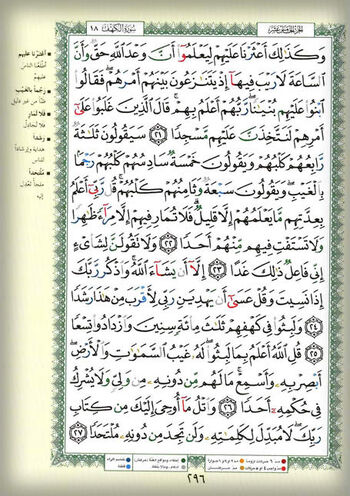 سُورَةُ الكَهْفِ ١٨
الجزء الخامس عشر
وَكَذَٰلِكَ أَعْثَرْنَا عَلَيْهِمْ لِيَعْلَمُوٓا۟ أَنَّ وَعْدَ ٱللَّهِ حَقٌّ وَأَنَّ
ٱلسَّاعَةَ لَا رَيْبَ فِيهَآ إِذْ يَتَنَٰزَعُونَ بَيْنَهُمْ أَمْرَهُمْ ۖ فَقَالُوا۟
ٱبْنُوا۟ عَلَيْهِم بُنْيَٰنًا ۖ رَّبُّهُمْ أَعْلَمُ بِهِمْ ۚ قَالَ ٱلَّذِينَ غَلَبُوا۟ عَلَىٰٓ
أَمْرِهِمْ لَنَتَّخِذَنَّ عَلَيْهِم مَّسْجِدًا ٢١ سَيَقُولُونَ ثَلَٰثَةٌ
رَّابِعُهُمْ كَلْبُهُمْ وَيَقُولُونَ خَمْسَةٌ سَادِسُهُمْ كَلْبُهُمْ رَجْمًۢا
بِٱلْغَيْبِ ۖ وَيَقُولُونَ سَبْعَةٌ وَثَامِنُهُمْ كَلْبُهُمْ ۚ قُل رَّبِّىٓ أَعْلَمُ
بِعِدَّتِهِم مَّا يَعْلَمُهُمْ إِلَّا قَلِيلٌ ۗ فَلَا تُمَارِ فِيهِمْ إِلَّا مِرَآءً ظَٰهِرًا
وَلَا تَسْتَفْتِ فِيهِم مِّنْهُمْ أَحَدًا ٢٢ وَلَا تَقُولَنَّ لِشَا۟ىْءٍ
إِنِّى فَاعِلٌ ذَٰلِكَ غَدًا ٢٣ إِلَّآ أَن يَشَآءَ ٱللَّهُ ۚ وَٱذْكُر رَّبَّكَ
إِذَا نَسِيتَ وَقُلْ عَسَىٰٓ أَن يَهْدِيَنِ رَبِّى لِأَقْرَبَ مِنْ هَٰذَا رَشَدًا
٢٤ وَلَبِثُوا۟ فِى كَهْفِهِمْ ثَلَٰثَ مِا۟ئَةٍ سِنِينَ وَٱزْدَادُوا۟ تِسْعًا
٢٥ قُلِ ٱللَّهُ أَعْلَمُ بِمَا لَبِثُوا۟ ۖ لَهُۥ غَيْبُ ٱلسَّمَٰوَٰتِ وَٱلْأَرْضِ ۖ
أَبْصِرْ بِهِۦ وَأَسْمِعْ ۚ مَا لَهُم مِّن دُونِهِۦ مِن وَلِىٍّ وَلَا يُشْرِكُ
فِى حُكْمِهِۦٓ أَحَدًا ٢٦ وَٱتْلُ مَآ أُوحِىَ إِلَيْكَ مِن كِتَابِ
رَبِّكَ ۖ لَا مُبَدِّلَ لِكَلِمَٰتِهِۦ وَلَن تَجِدَ مِن دُونِهِۦ مُلْتَحَدًا ٢٧
أعثرنا عليهم
أطلعنا الناس
عليهم
رجماً بالغيب
ظناً من غير يقين
فلا تمار
فلا تجادل
رشداً
هداية وإرشاداً
للناس
ملتحداً
ملجأ تعدل
إليه
٢٩٦